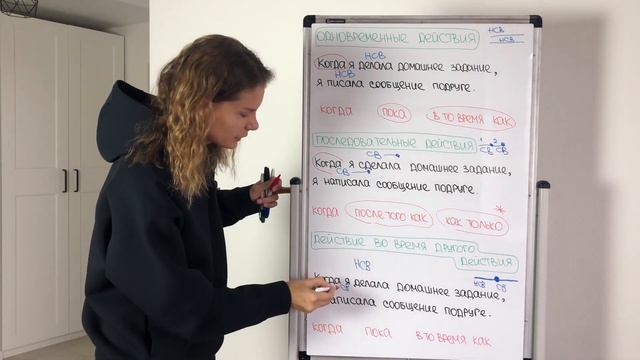 ОДНОВРЕМЕННЫЕ ДЕЙСТВИЯ
НСВ
НСВ
НСВ
Когда я делала домашнее задание,
НСВ
я писала сообщение подруге.
когда пока в то время как
ПОСЛЕДОВАТЕЛЬНЫЕ ДЕЙСТВИЯ
1 2
СВ СВ
СВ
Когда я сделала домашнее задание,
СВ
я написала сообщение подруге.
когда после того как как только *
ДЕЙСТВИЕ ВО ВРЕМЯ ДРУГОГО
ДЕЙСТВИЯ
НСВ СВ
НСВ
Когда я делала домашнее задание,
СВ
написала сообщение подруге.
когда пока в то время как